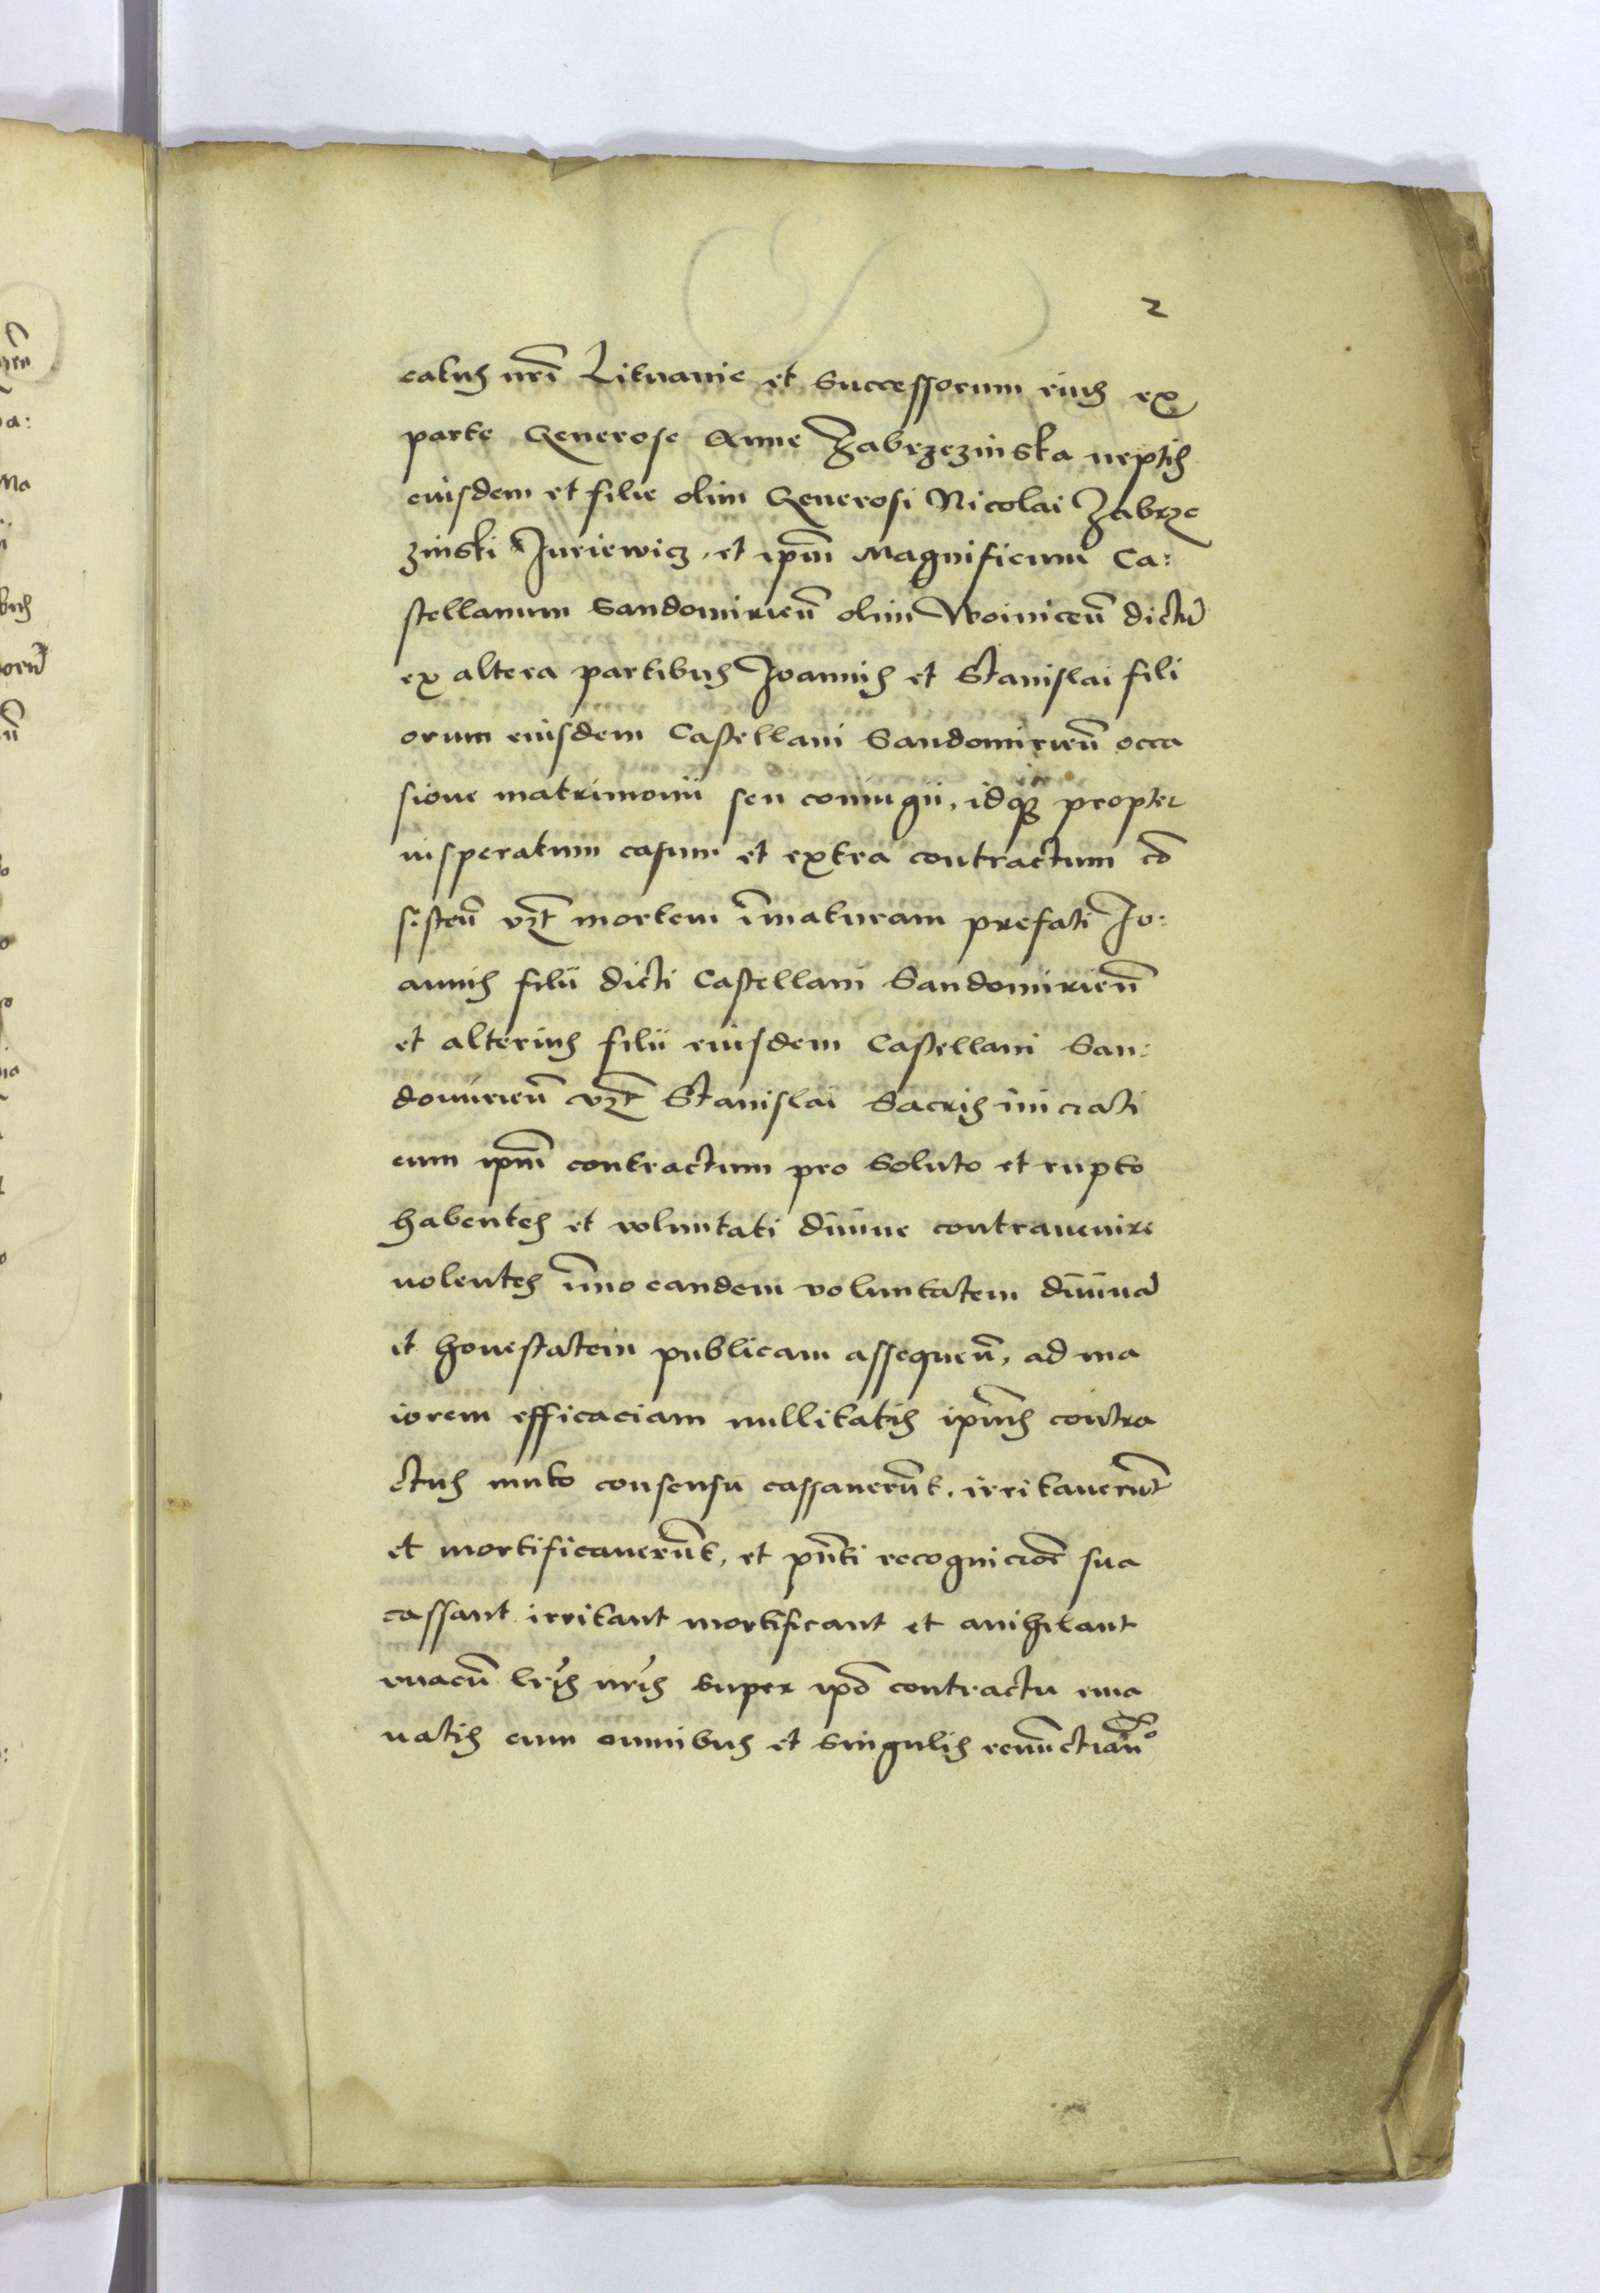 2
catus nr̄i Lituanie et Successorum eius ex
parte Generose Anne Zabrzezinska neptis
eiusdem et filie olim Generosi Nicolai Zabrze
zinski Juriewicz, et ip̄m Magnificum Ca:
stellanum Sandomirien̄ olim Woinicen̄ dictū
ex altera partibus Joannis et Stanislai fili
orum eiusdem Castellani Sandomirien̄ occa
sione matrimonii seu coniugii, idq; propter
insperatum casum et extra contractum cō
sisten̄ vz̄t mortem īmaturam prefati Jo:
annis filii dicti Castellani Sandomirien̄
et alterius filii eiusdem Castellani San:
domirien̄ vz̄t Stanislai Sacris iniciati
eum ip̄m contractum pro Soluto et rupto
habentes et voluntati diuine contrauenire
nolentes īmo eandem voluntatem diuinā
et honestatem publicam assequen̄, ad ma
iorem efficaciam nullitatis ip̄ius contra
ctus muto consensu cassauerūt, irritauerūt
et mortificauerūt, et pn̄ti recognicioē sua
cassant irritant mortificant et anihilant
vnacū lr̄is nr̄is Super ip̄o contractu ema
natis cum omnibus et Singulis